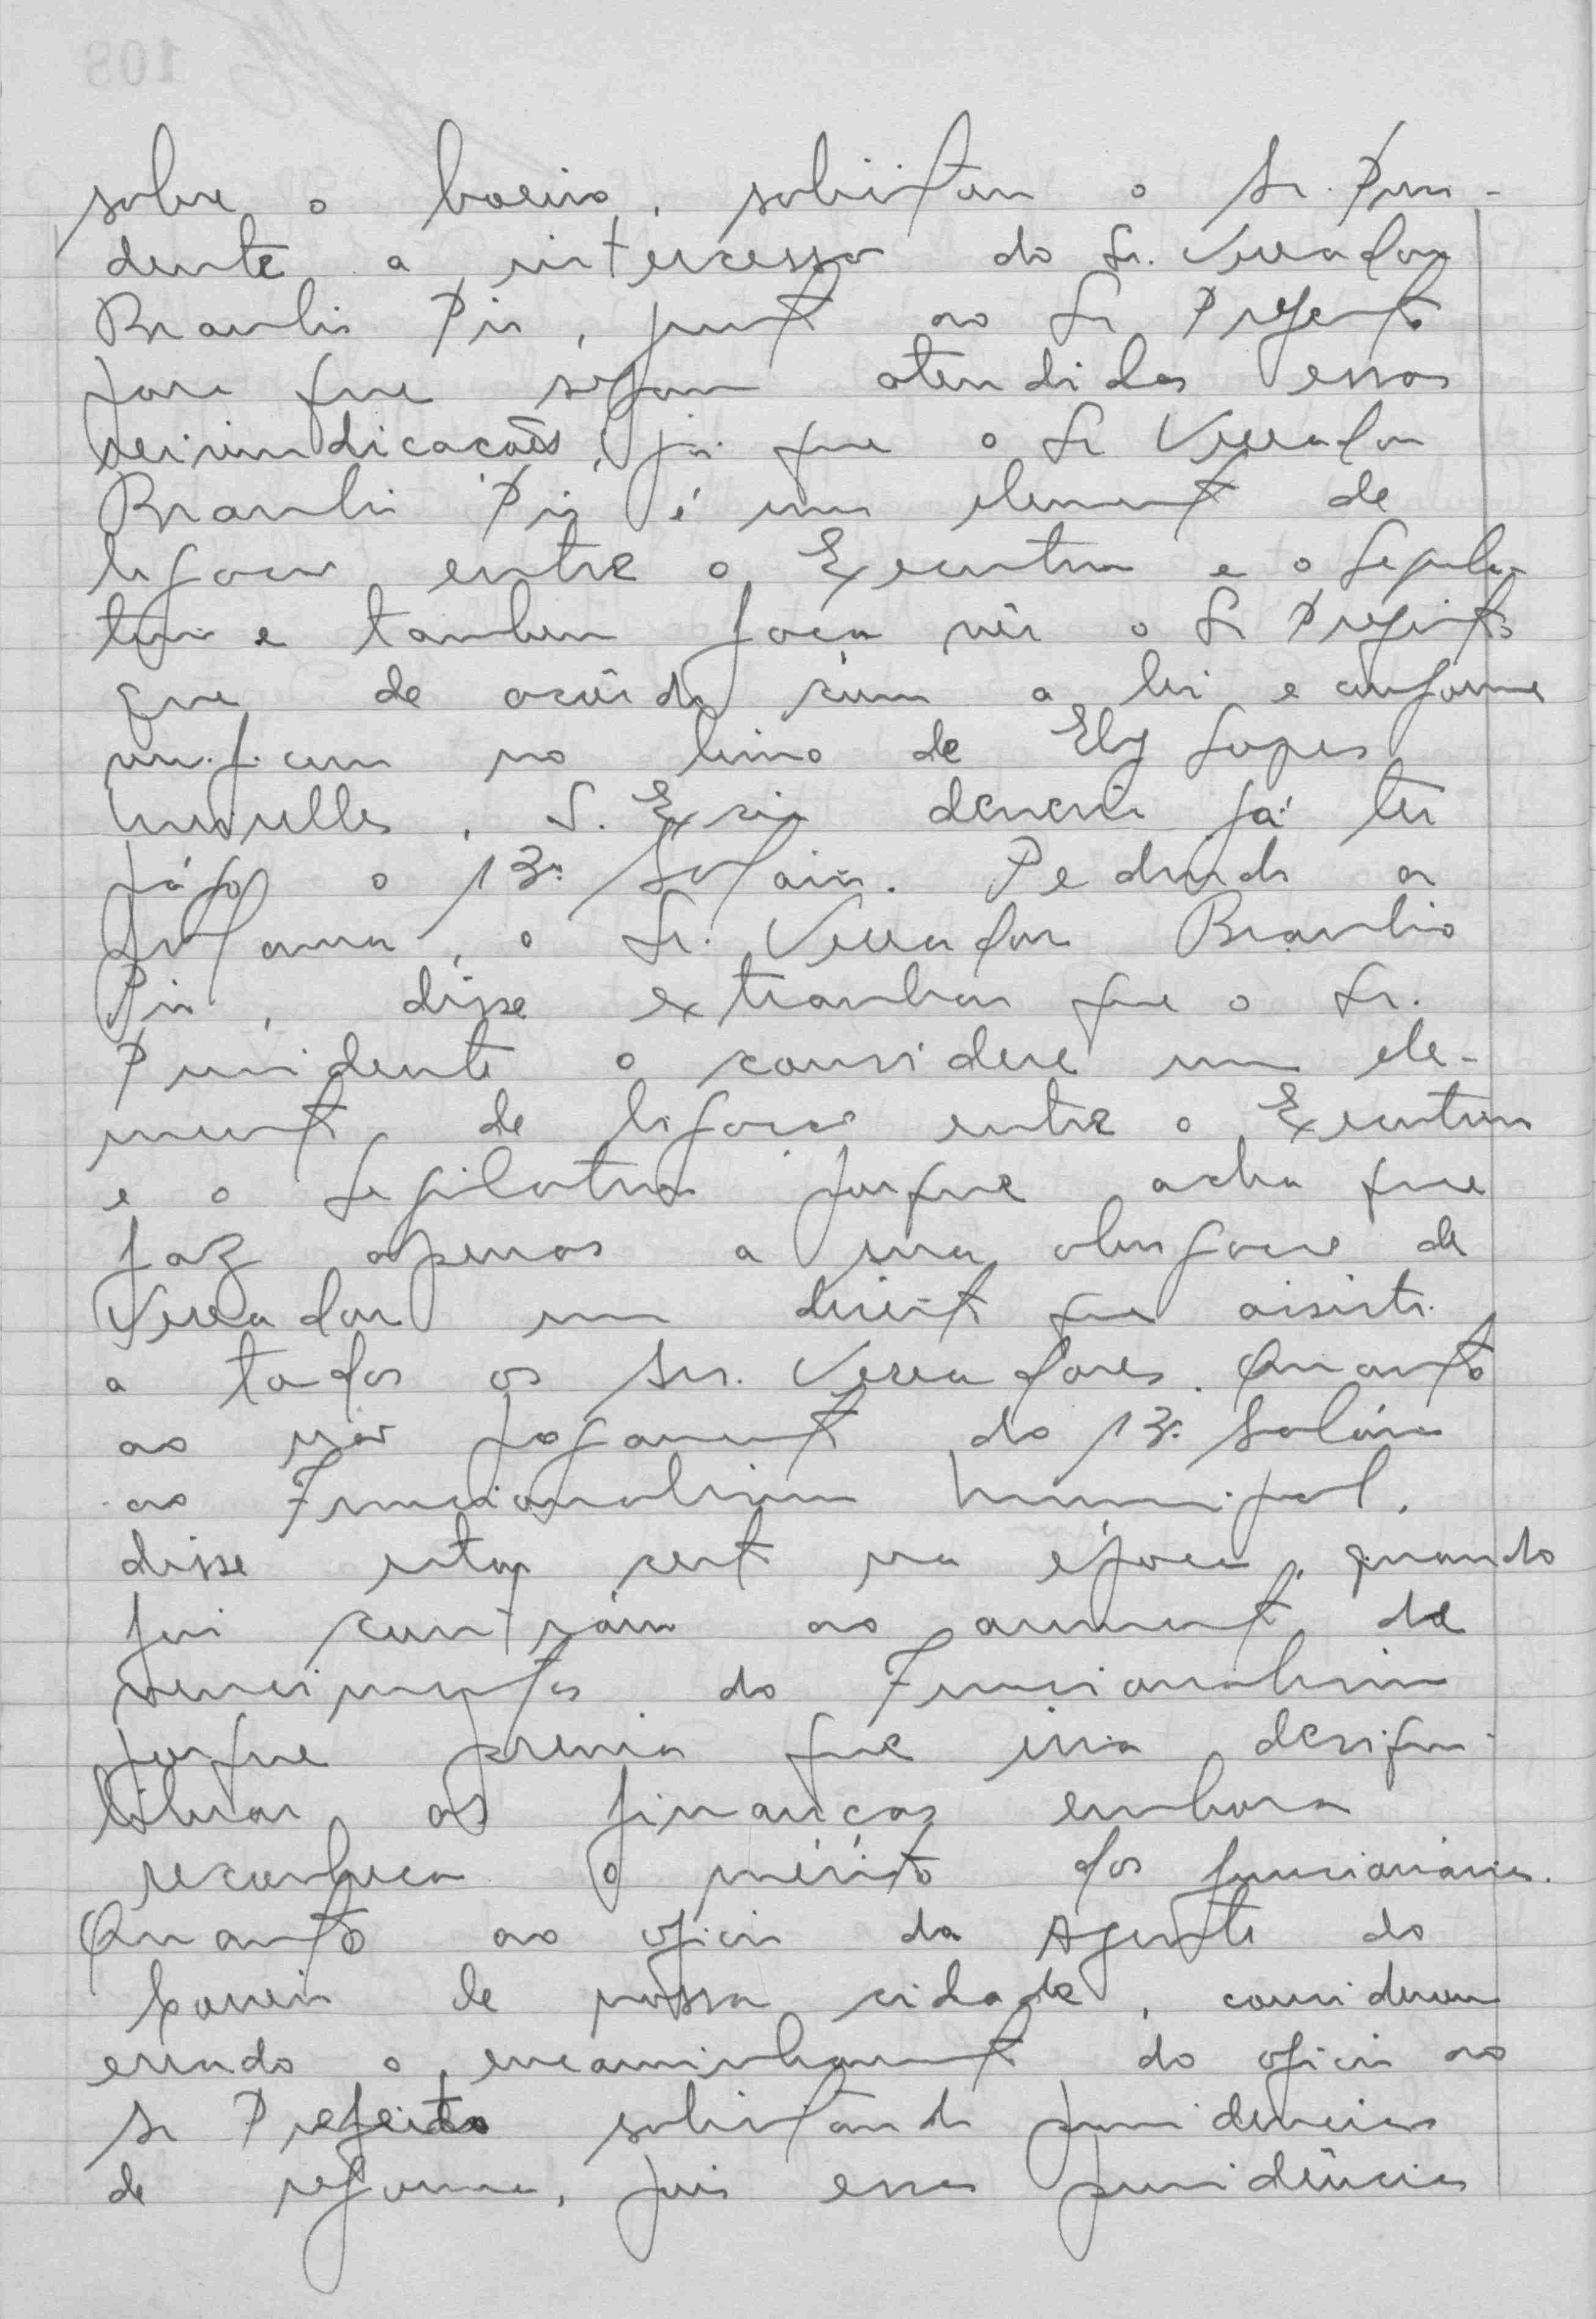 sobre o boeiro, solicitou o Sr. Presi-
dente a intercessão do Sr. Vereador
Braulio Pio, junto ao Sr Prefeito
para que sejam atendidas essas
reivindicacões, já que o Sr Vereador
Braulio Pio é um elemento de
ligacão entre o Executivo e o Legisla-
tivo e tambem faça vêr o Sr Prefeito
que de acôrdo com a lei e conforme
verificou no livro de Ely Lopes
Meirelles, S. Excia deveria já ter
págo o 13º Salário. Pedindo a
palavra, o Sr. Vereador Braulio
Pio, disse extranhar que o Sr.
Presidente o considere um ele-
mento de ligacão entre o Executivo
e o Legislativo porque acha que
faz apenas a sua obrigacão de
Vereador um direito que assiste
a todos os Srs. Vereadores. Quanto
ao não pagamento do 13º Salário
ao Funcionalismo Municipal,
disse estar certo na época, quando
foi contrário ao aumento de
vencimentos do Funcionalismo
porque previa que iria desiqui-
librar as financas embora
reconheca o mérito dos funcionários.
Quanto ao oficio da Agente do
Correio de nossa cidade, considerou
errado o encaminhamento do oficio ao
Sr Prefeito solicitando providencias
de reforma, pois essas providências